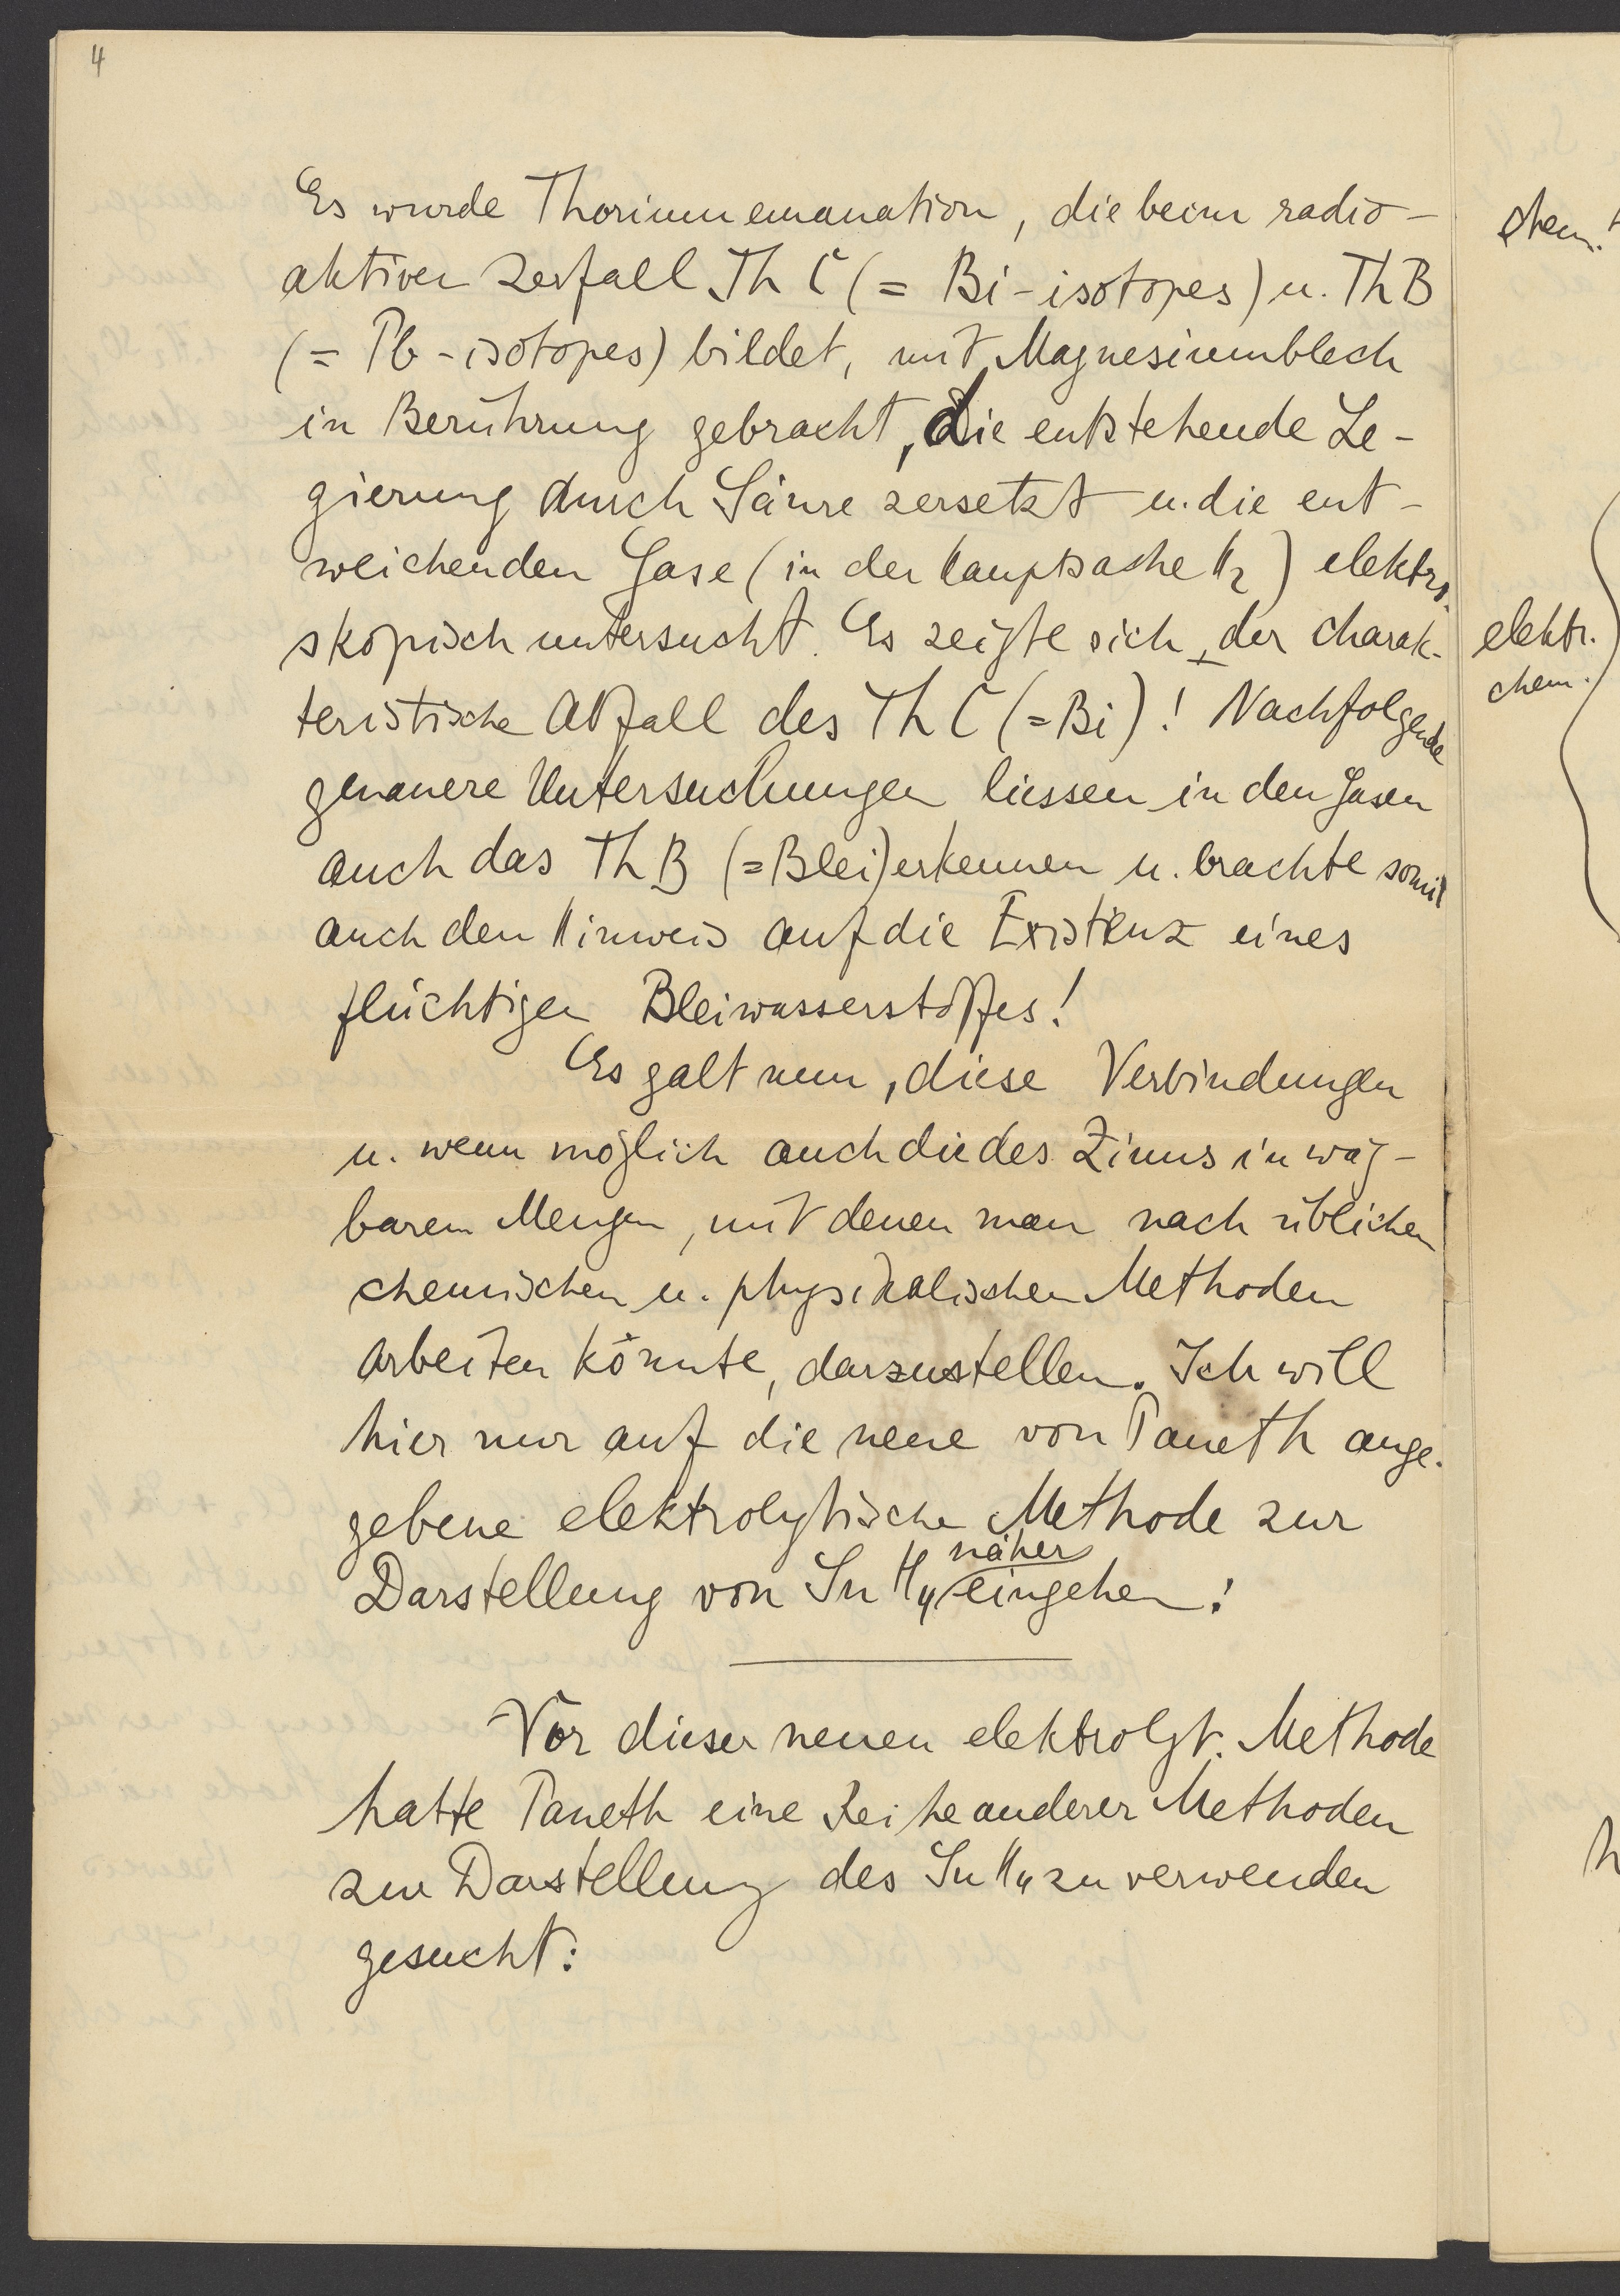 4
Es wurde Thoriumemanation, die beim radio-
aktiven Zerfall Th C (= Bi-isotopes) u. Th B
(= Pb-isotopes) bildet, mit Magnesiumblech
in Berührung gebracht, die entstehende Le-
gierung durch Säure zersetzt u. die ent-
weichenden Gase (in der Hauptsache H2) elektro-
skopisch untersucht. Es zeigte sich der charak-
teristische Abfall des Th C (=Bi)! Nachfolgende
genauere Untersuchungen liessen in den Gasen
auch das Th B (=Blei) erkennen u. brachte somit
auch den Hinweis auf die Existenz eines
flüchtigen Bleiwasserstoffes!
Es galt nun, diese Verbindungen
u. wenn möglich auch die des Zinns in wäg-
baren Mengen, mit denen man nach üblichen
chemischen u. physikalischen Methoden
arbeiten könnte, darzustellen. Ich will
hier nur auf die neue von Paneth ange-
gebene elektrolytische Methode zur
Darstellung von SnH4 näher eingehen!
Vor dieser neuen elektrolyt. Methode
hatte Paneth eine Reihe anderer Methoden
zur Darstellung des SnH4 zu verwenden
gesucht:
chem.
elektr.
chem.